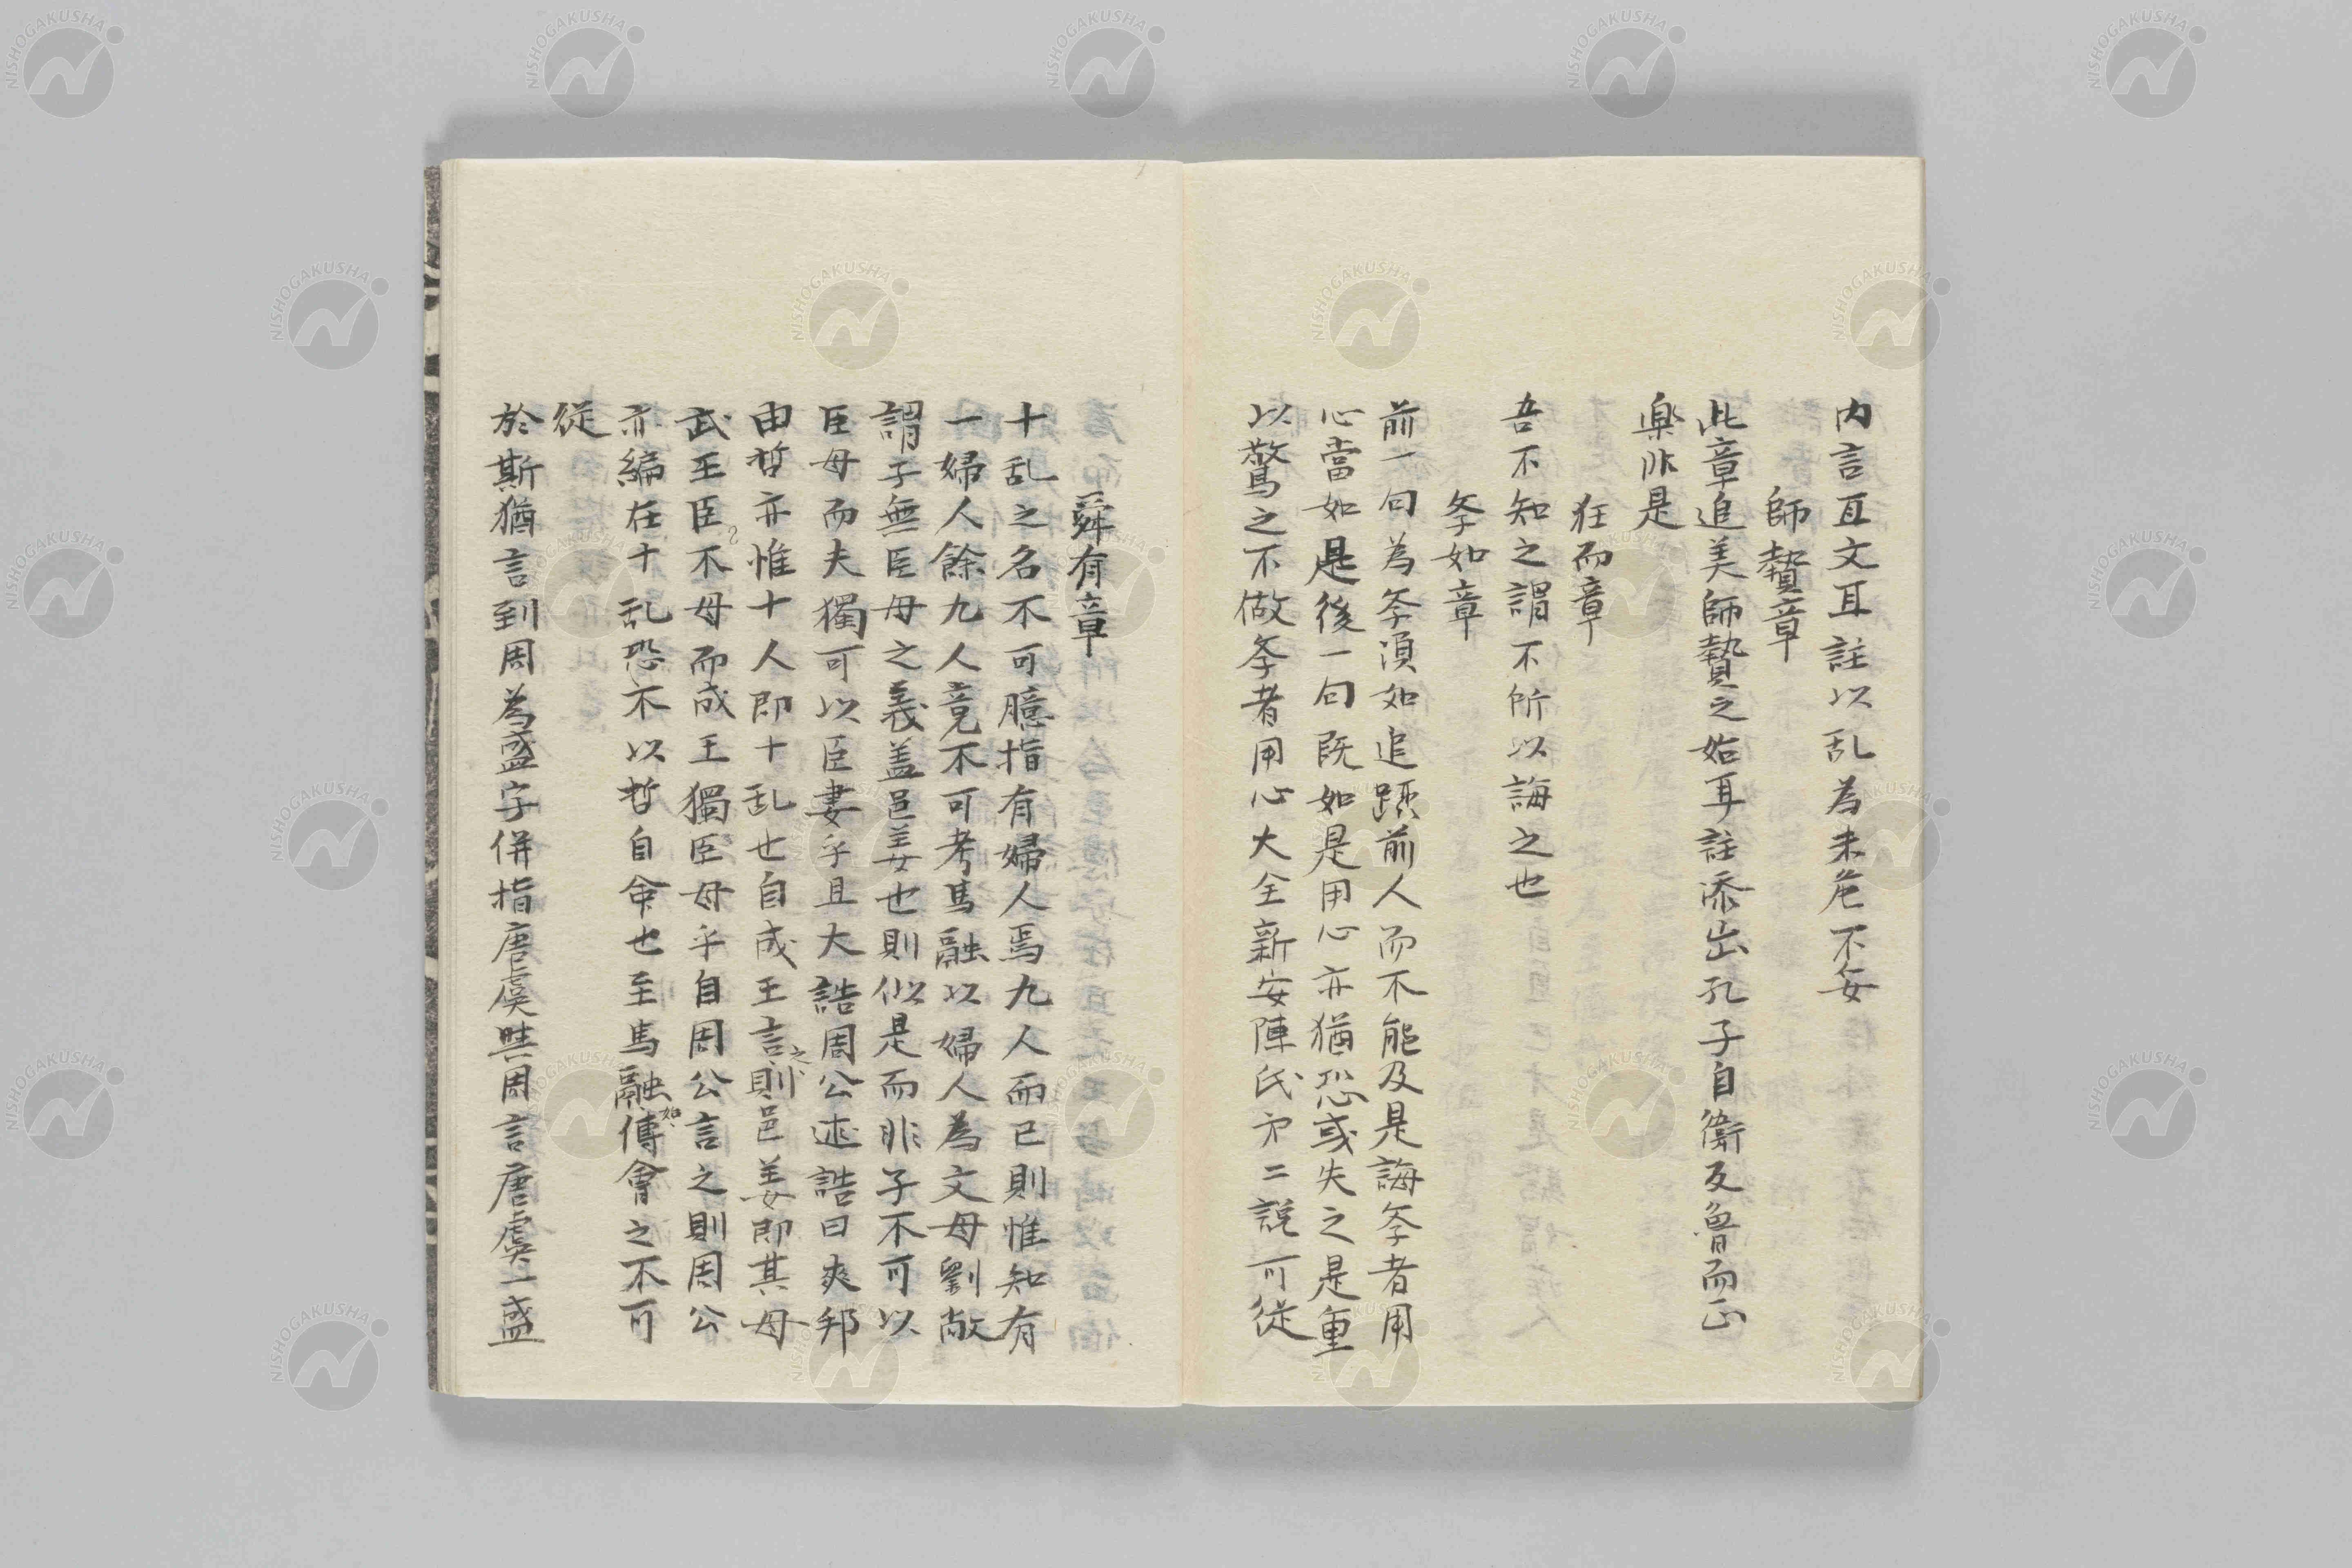 内言互文耳註以乱為未危不妥
師贄章
此章追美師贄之始耳註添出孔子自衛反魯而正
楽非是
狂而章
吾不知之謂不所以誨之也
斈如章
前一句為斈須如追蹤前人而不能及是誨斈者用
心當如是後一句既如是用心亦猶恐或失之是重
以驚之不做斈者用心大全新安陳氏分二説可從
舜有章
十乱之名不可臆指有婦人焉九人而已則惟知有
一婦人餘九人竟不可考馬融以婦人為文母劉敞
謂子無臣母之義盖邑姜也則似是而非子不可以
臣母而夫獨可以臣妻乎且大誥周公述誥曰爽邦
由哲亦惟十人即十乱也自成王言之則邑姜即其母
武王臣不母而成王獨臣母乎自周公言之則周公
亦編在十乱恐不以哲自命也至馬融如傅會之不可
従
於斯猶言到周為盛字併指唐虞與周言唐虞一盛
NISHOGAKUSHA